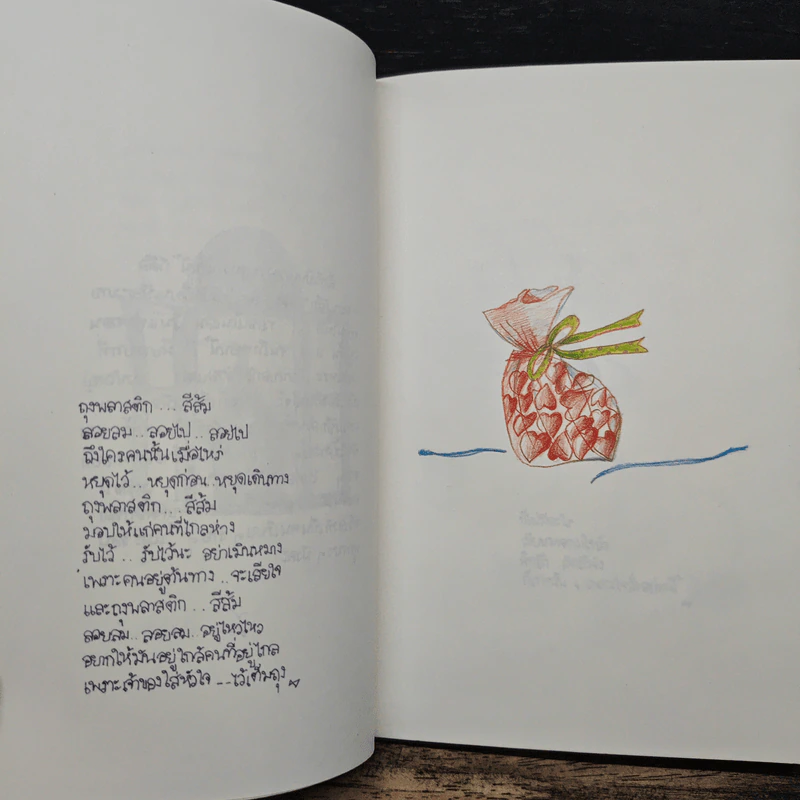 ถุงพลาสติก...สีส้ม
ลอยลม..ลอยไป..ลอยไป
ถึงใครคนนั้นเมื่อไหร่
หยุดไว้..หยุดก่อน..หยุดเดินทาง
ถุงพลาสติก...สีส้ม
มอบให้แก่คนที่ไกลห่าง
รับไว้..รับไว้นะ อย่าเมินหมาง
เพราะคนอยู่อีกทาง..จะเสียใจ
และถุงพลาสติก...สีส้ม
ลอยลม..ลอยลม..อยู่ไหวไหว
อยากให้มันอยู่ใกล้คนที่อยู่ไกล
เพราะเจ้าของใส่หัวใจ--ไว้เต็มถุง